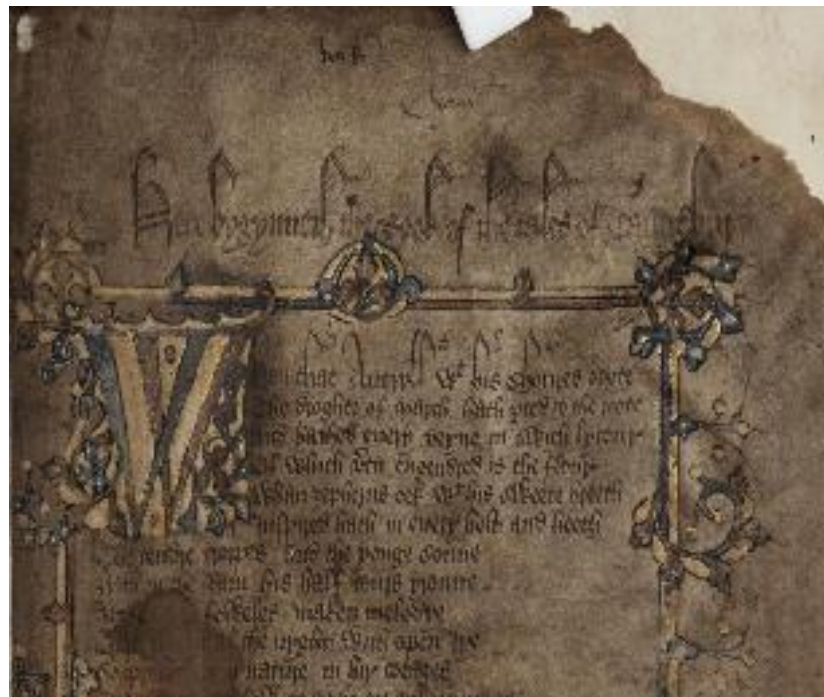 Here bygynneth the Book of the tales of Caunterbury
Whan that Aueryll wt his shoures soote
The droghte of March hath perced to the roote
And bathed euery veyne in swich lycour
Of which vertu engendred is the flour
Whan zephirus eek wt his sweete breeth
Inspired hath in euery holt and heeth
The tendre croppes and the yonge sonne
Hath in the Ram his half cours yronne
foweles maken melodye
the nyght with open Iye
nature in hir corages